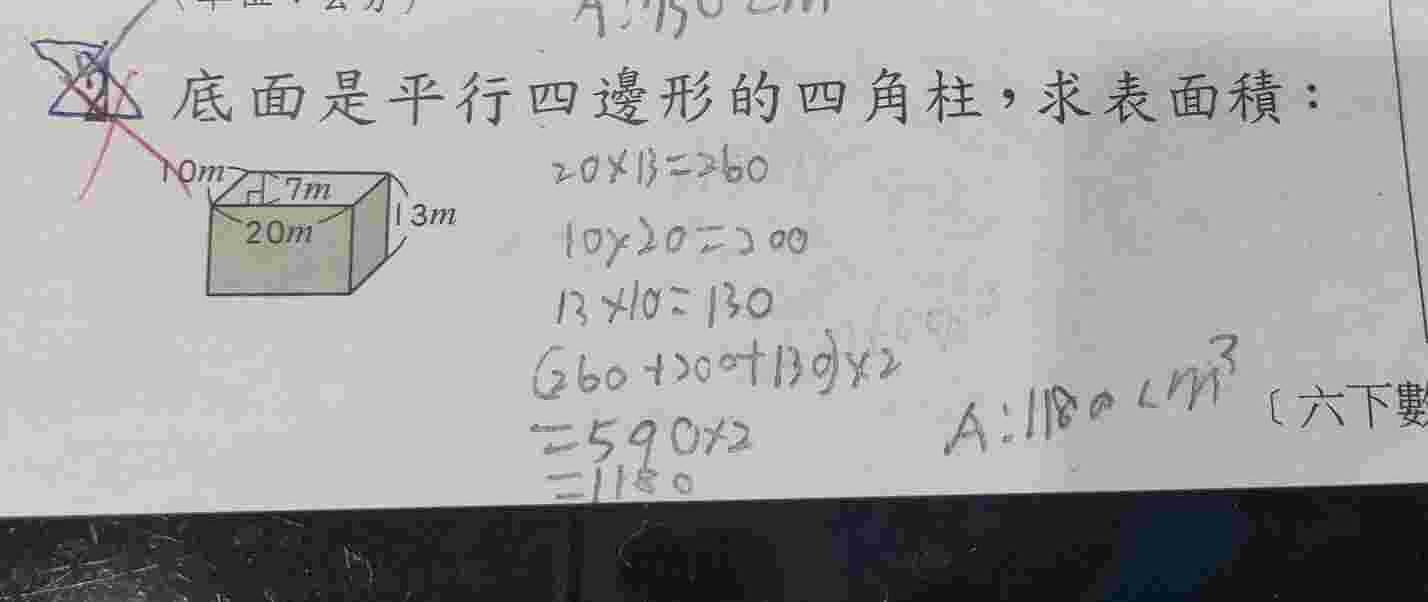 (單位:公分)
A:450 cm
底面是平行四邊形的四角柱,求表面積:
10m 7m
20m 13m
20×13=260
10×20=200
13×10=130
(260+200+130)×2
=590×2
=1180
A:1180 cm³
(六下數